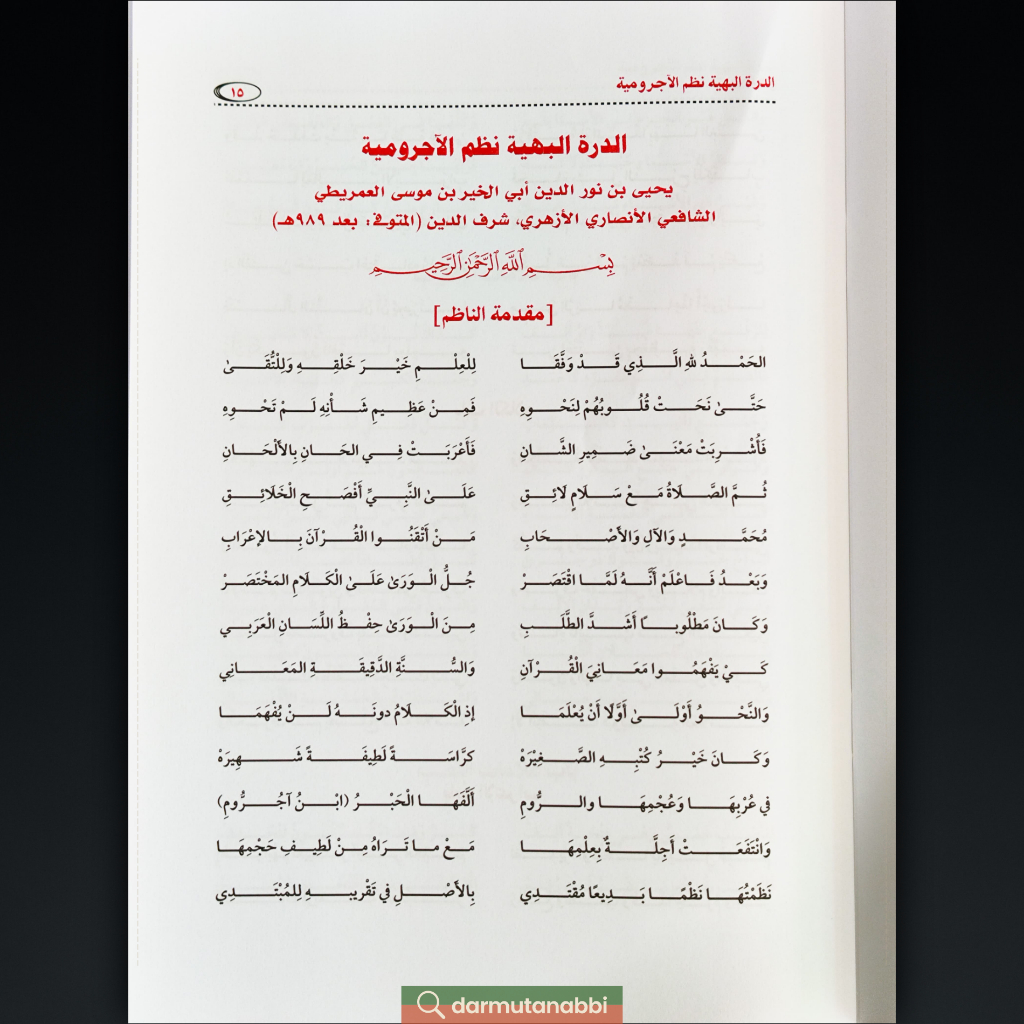 الدرة البهية نظم الآجرومية ١٥
الدرة البهية نظم الآجرومية
يحيى بن نور الدين أبي الخير بن موسى العمريطي
الشافعي الأنصاري الأزهري، شرف الدين (المتوفى: بعد ٩٨٩هـ)
بِسْمِ اللَّهِ الرَّحْمَنِ الرَّحِيمِ
[مقدمة الناظم]
الحَمْدُ للهِ الَّذِي قَدْ وَفَّقَا لِلْعِلْمِ خَيْرَ خَلْقِهِ وَلِلتُّقَىٰ
حَتَّىٰ نَحَتْ قُلُوبُهُمْ لِنَحْوِهِ فَمِنْ عَظِيمِ شَأْنِهِ لَمْ تَحْوِهِ
فَأُشْرِبَتْ مَعْنَىٰ ضَمِيرِ الشَّانِ فَأَعْرَبَتْ فِي الحَانِ بِالأَلْحَانِ
ثُمَّ الصَّلَاةُ مَعْ سَلَامٍ لَائِقِ عَلَىٰ النَّبِيِّ أَفْصَحِ الْخَلَائِقِ
مُحَمَّدٍ وَالآلِ وَالأَصْحَابِ مَنْ أَتْقَنُوا الْقُرْآنَ بِالإِعْرَابِ
وَبَعْدُ فَاعْلَمْ أَنَّهُ لَمَّا اقْتَصَرْ جُلُّ الْوَرَىٰ عَلَىٰ الْكَلَامِ المُخْتَصَرْ
وَكَانَ مَطْلُوبًا أَشَدَّ الطَّلَبِ مِنَ الْوَرَىٰ حِفْظُ اللِّسَانِ الْعَرَبِي
كَيْ يَفْهَمُوا مَعَانِيَ الْقُرْآنِ وَالسُّنَّةِ الدَّقِيقَةِ المَعَانِي
وَالنَّحْوُ أَوْلَىٰ أَوَّلًا أَنْ يُعْلَمَا إِذِ الْكَلَامُ دونَهُ لَنْ يُفْهَمَا
وَكَانَ خَيْرُ كُتْبِهِ الصَّغِيْرَهْ كرَّاسَةً لَطِيفَةً شَهِيرَهْ
في عُرْبِهَا وَعُجْمِهَا والرُّومِ أَلَّفَهَا الْحَبْرُ (ابْنُ آجُرُّومِ)
وَانْتَفَعَتْ أَجِلَّةٌ بِعِلْمِهَا مَعْ ما تَرَاهُ مِنْ لَطِيفِ حَجْمِهَا
نَظَمْتُهَا نَظْمًا بَدِيعًا مُقْتَدِي بِالأَصْلِ في تَقْرِيبِهِ لِلمُبْتَدِي
darmutanabbi